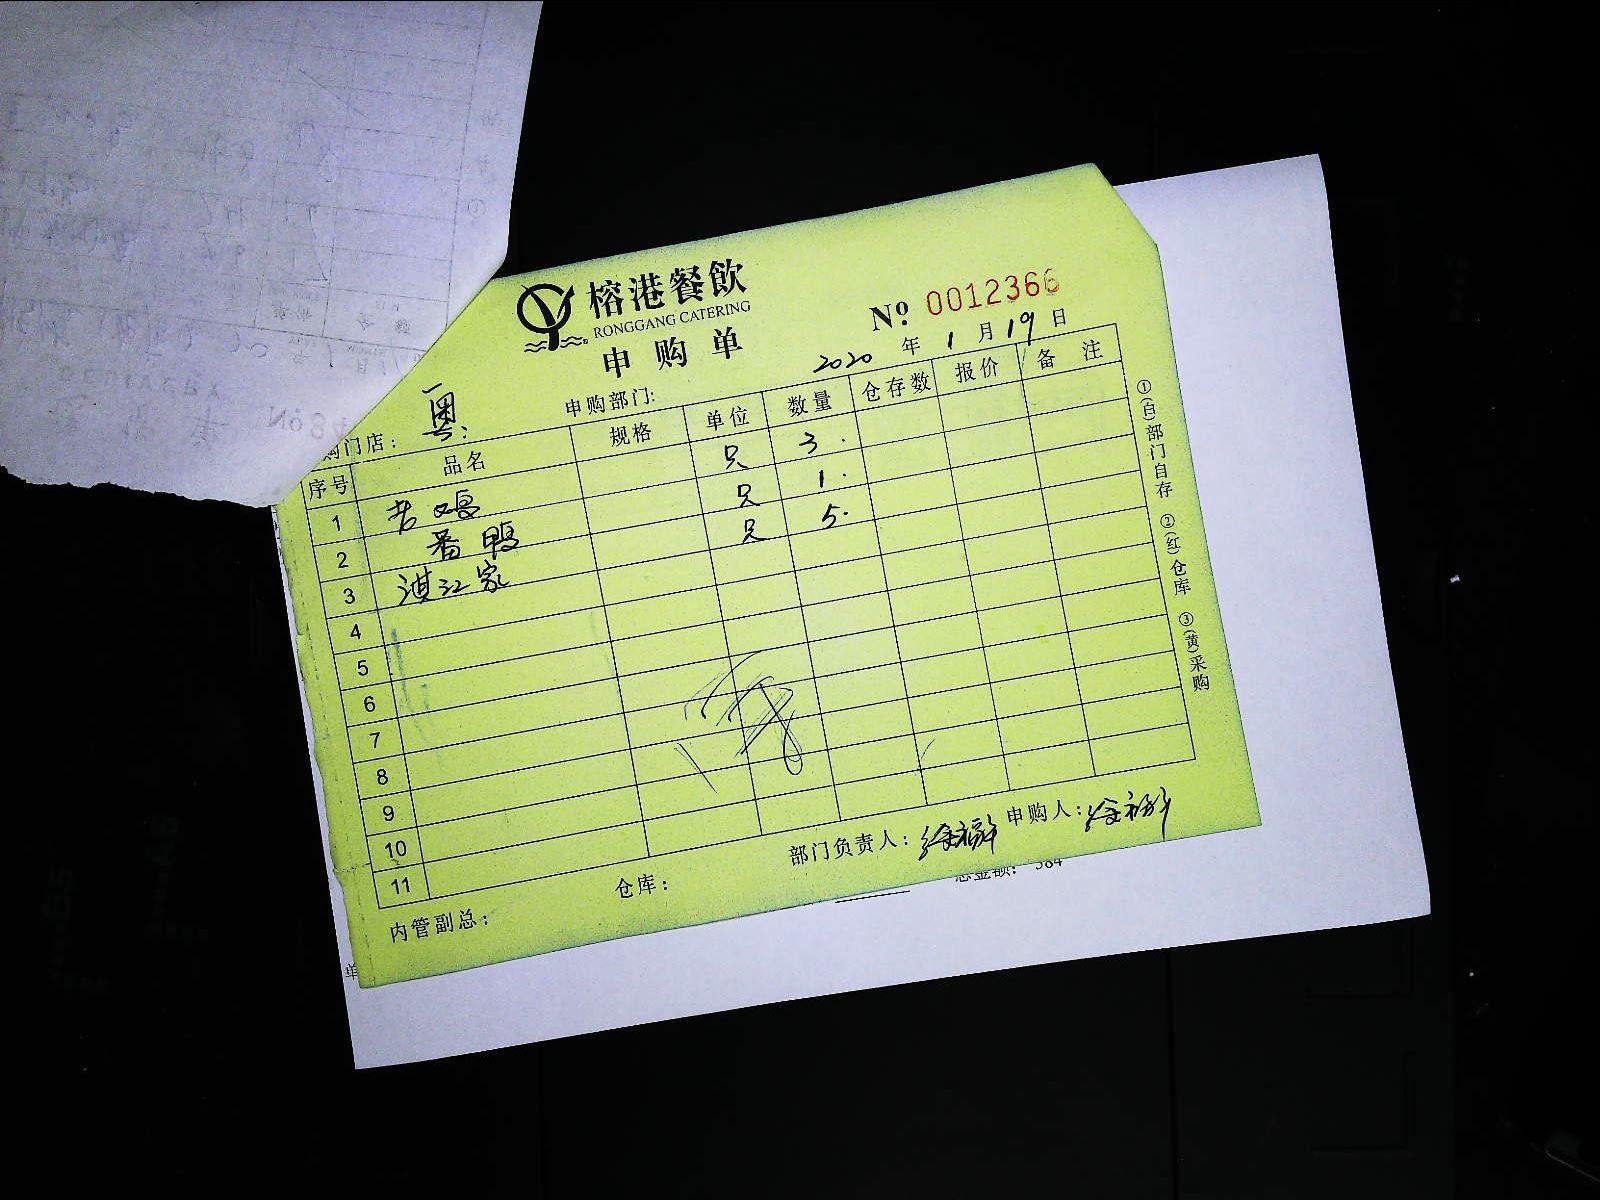 榕港餐飲
RONGGANG CATERING
申购单
№ 0012366
2020 年 1 月 19 日
购门店: 粤 申购部门:
序号 品名 规格 单位 数量 仓存数 报价 备注
1 只 3
2 番鸭 只 1
3 湛江 只 5
4
5
6
7
8
9
10
11
①(白)部门自存 ②(红)仓库 ③(黄)采购
内管副总: 仓库: 部门负责人: 申购人:
总金额: 384
单